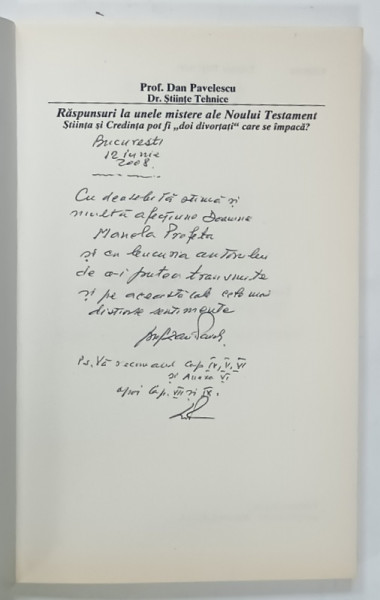 Prof. Dan Pavelescu
Dr. Științe Tehnice
Răspunsuri la unele mistere ale Noului Testament
Știința și Credința pot fi „doi divorțați“ care se împacă?
București
12 iunie
2008.
Cu deosebită stimă și
multă afecțiune Doamnei
Manola Profeta
și cu bucuria autorului
de a-i putea transmite
și pe această cale cele mai
distinse sentimente
Ps. Vă recomand Cap IV, V, VI
și Anexa VI
apoi Cap. VII și IX.